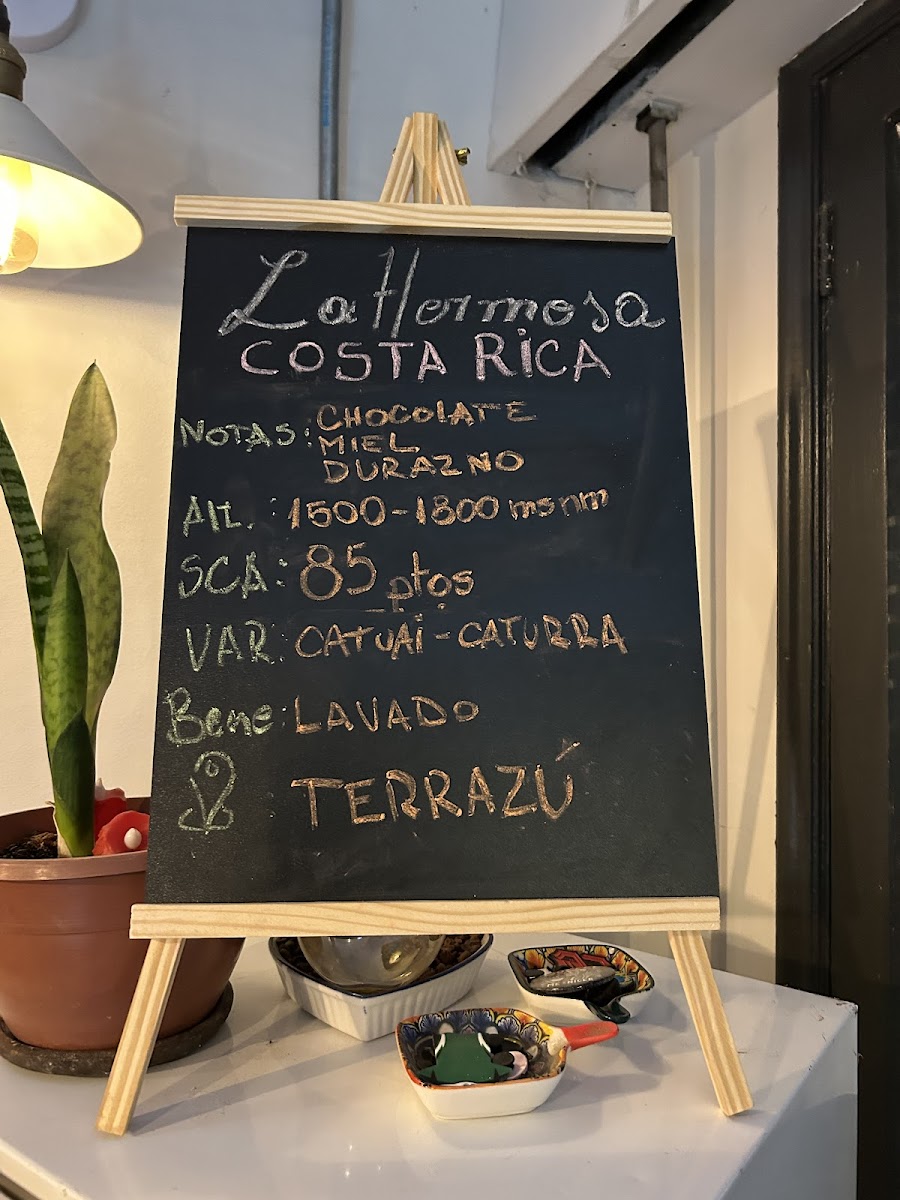 La Hermosa
COSTA RICA
NOTAS: CHOCOLATE
MIEL
DURAZNO
Alt.: 1500-1800 msnm
SCA: 85 ptos
VAR: CATUAÍ-CATURRA
Bene: LAVADO
TERRAZÚ